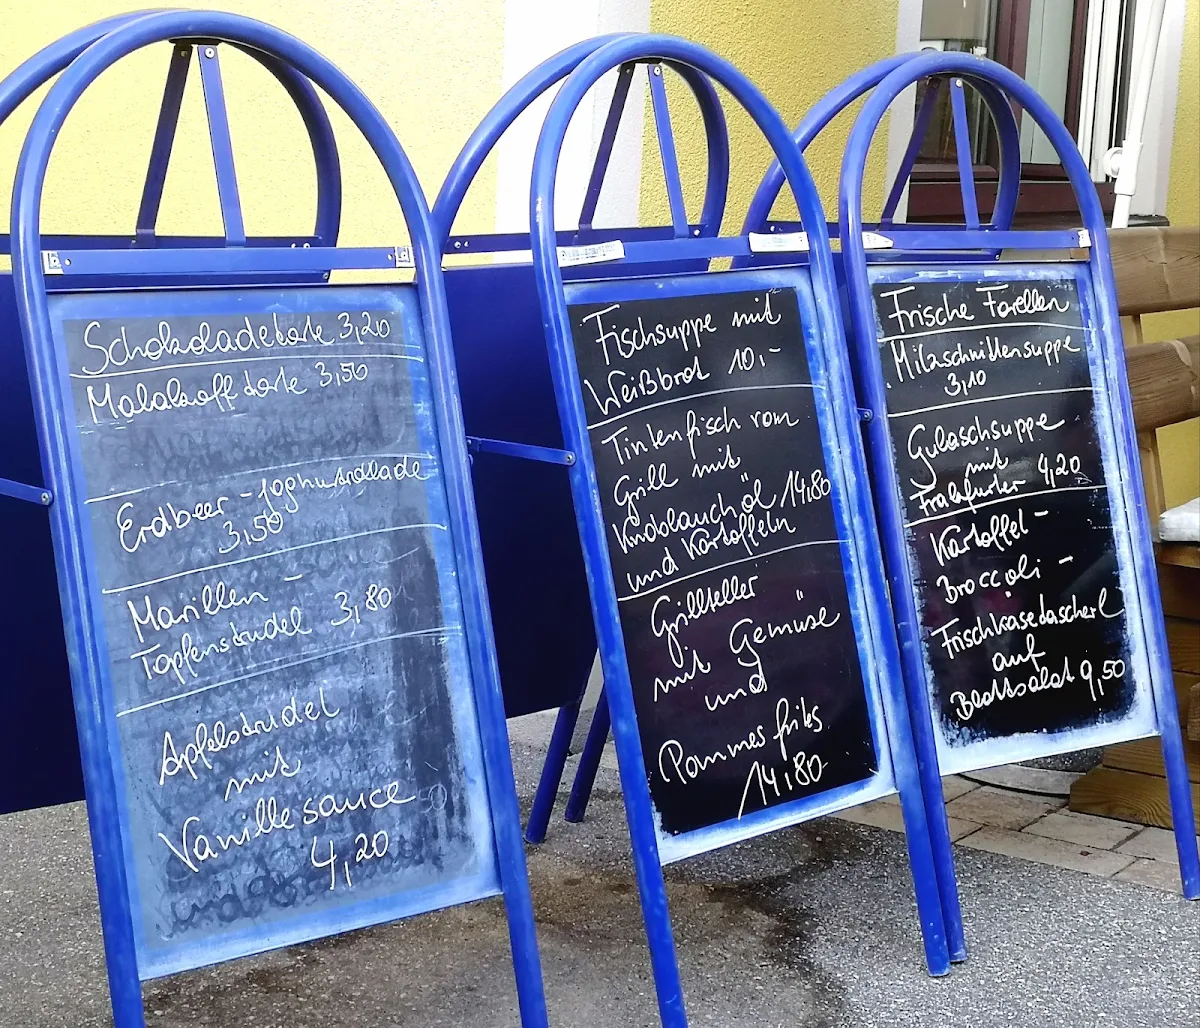 Schokoladetorte 3,20
Malakoff torte 3,50
Erdbeer-Joghurtroulade
3,50
Marillen -
Topfenstrudel 3,80
Apfelstrudel
mit
Vanillesauce
4,20
Fischsuppe mit
Weißbrot 10,-
Tintenfisch vom
Grill mit
Knoblauchöl 14,80
und Kartoffeln
Grillteller
mit Gemüse
und
Pommes frites
14,80
Frische Forellen
Milzschnittensuppe
3,10
Gulaschsuppe
mit
Frankfurter 4,20
Kartoffel -
Broccoli -
Frischkäsetascherl
auf
Blattsalat 9,50